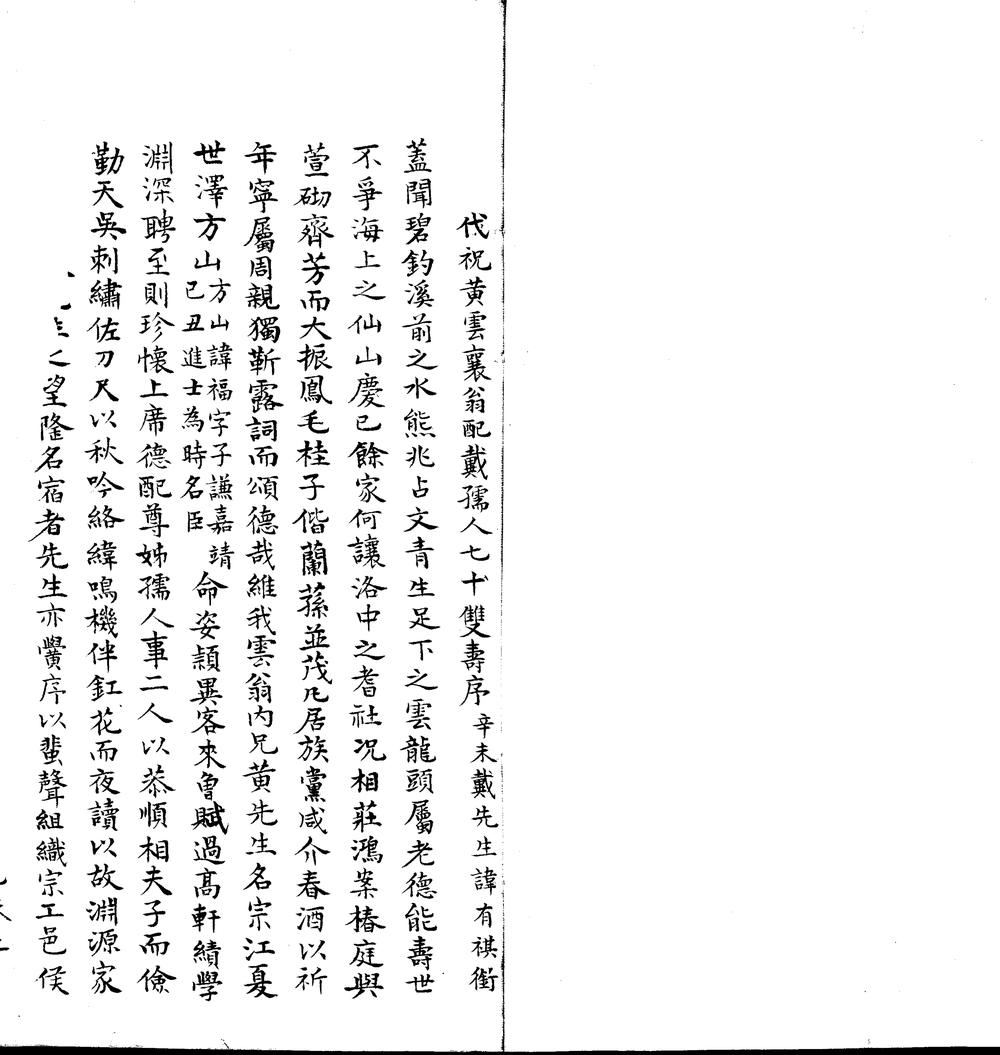 代祝黃雲襄翁配戴孺人七十雙壽序辛未戴先生諱有祺銜
蓋聞碧釣溪前之水熊兆占文青生足下之雲龍頭屬老德能壽世
不爭海上之仙山慶已餘家何讓洛中之耆社況相莊鴻案椿庭與
萱砌齊芳而大振鳳毛桂子偕蘭蓀並茂凡居族黨咸介春酒以祈
年寧屬周親獨靳露詞而頌德哉維我雲翁內兄黃先生名宗江夏
世澤方山方山諱福字子謙嘉靖己丑進士為時名臣命姿穎異客來曾賦過高軒績學
淵深聘至則珍懷上席德配尊姊孺人事二人以恭順相夫子而儉
勤天吳刺繡佐刀尺以秋吟絡緯鳴機伴釭花而夜讀以故淵源家
之望隆名宿者先生亦黌序以蜚聲組織宗工邑侯